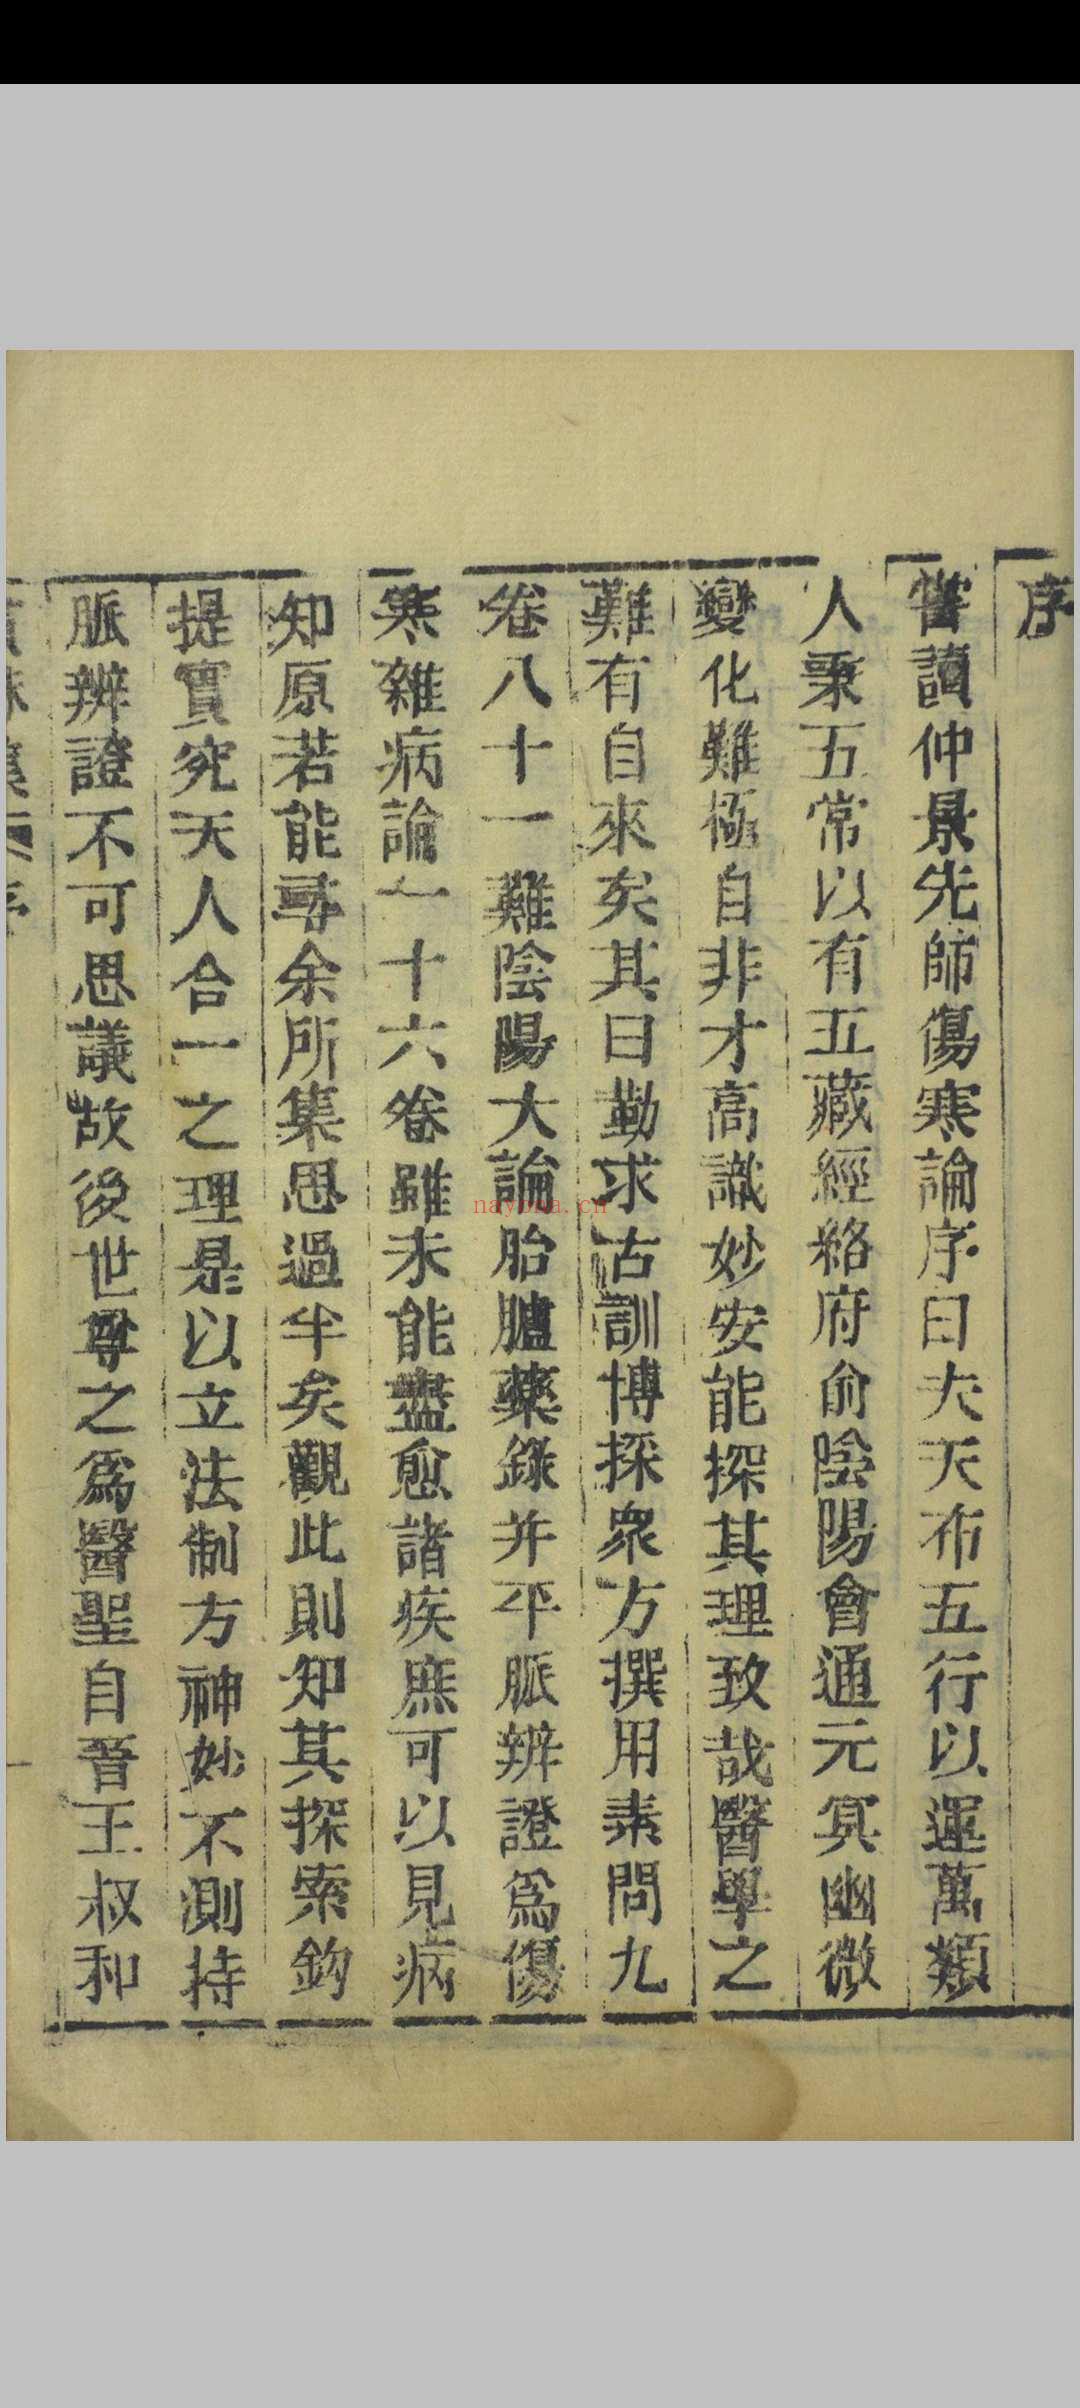 序
嘗讀仲景先師傷寒論序曰夫天布五行以運萬類
人稟五常以有五藏經絡府俞陰陽會通元冥幽微
變化難極自非才高識妙安能探其理致哉醫學之
難有自來矣其曰勤求古訓博採衆方撰用素問九
卷八十一難陰陽大論胎臚藥錄并平脈辨證爲傷
寒雜病論一十六卷雖未能盡愈諸疾庶可以見病
知原若能尋余所集思過半矣觀此則知其探索鈎
提實究天人合一之理是以立法制方神妙不測持
脈辨證不可思議故後世尊之爲醫聖自晉王叔和
nayona.cn